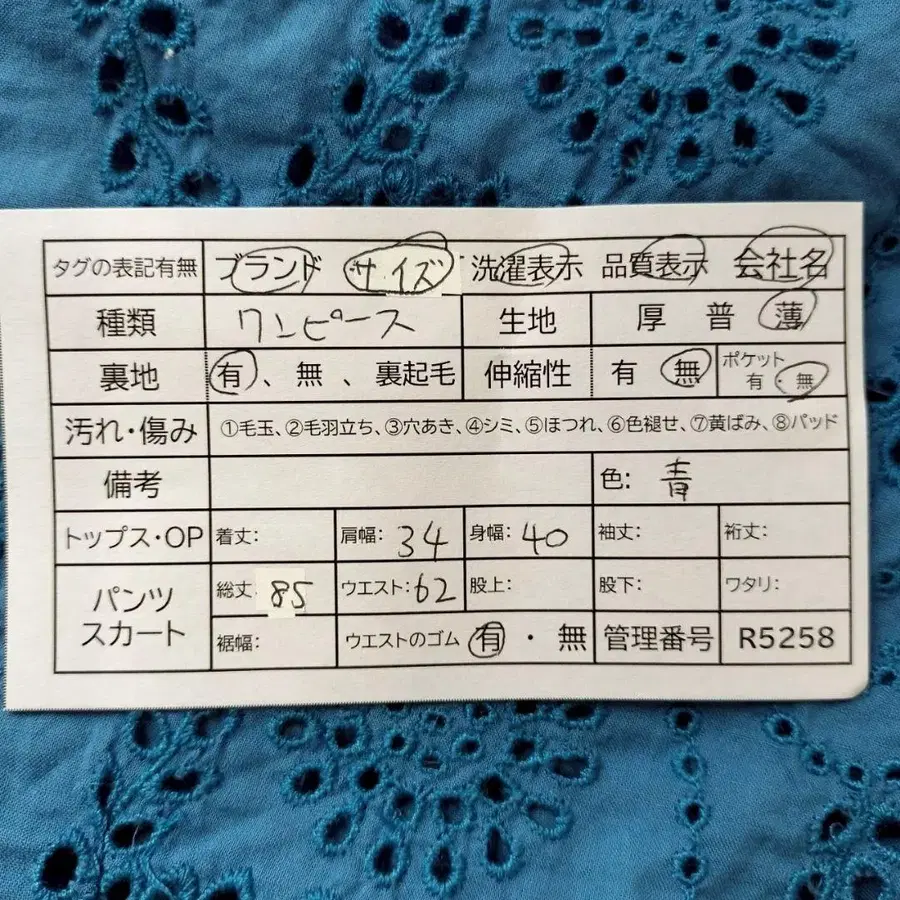 タグの表記有無 ブランド サイズ 洗濯表示 品質表示 会社名
種類 ワンピース 生地 厚 普 薄
裏地 有、無、裏起毛 伸縮性 有 無 ポケット 有・無
汚れ・傷み ①毛玉、②毛羽立ち、③穴あき、④シミ、⑤ほつれ、⑥色褪せ、⑦黄ばみ、⑧パッド
備考 色: 青
トップス・OP 着丈: 肩幅: 34 身幅: 40 袖丈: 裄丈:
パンツ スカート 総丈 85 ウエスト: 62 股上: 股下: ワタリ:
裾幅: ウエストのゴム 有・無 管理番号 R5258